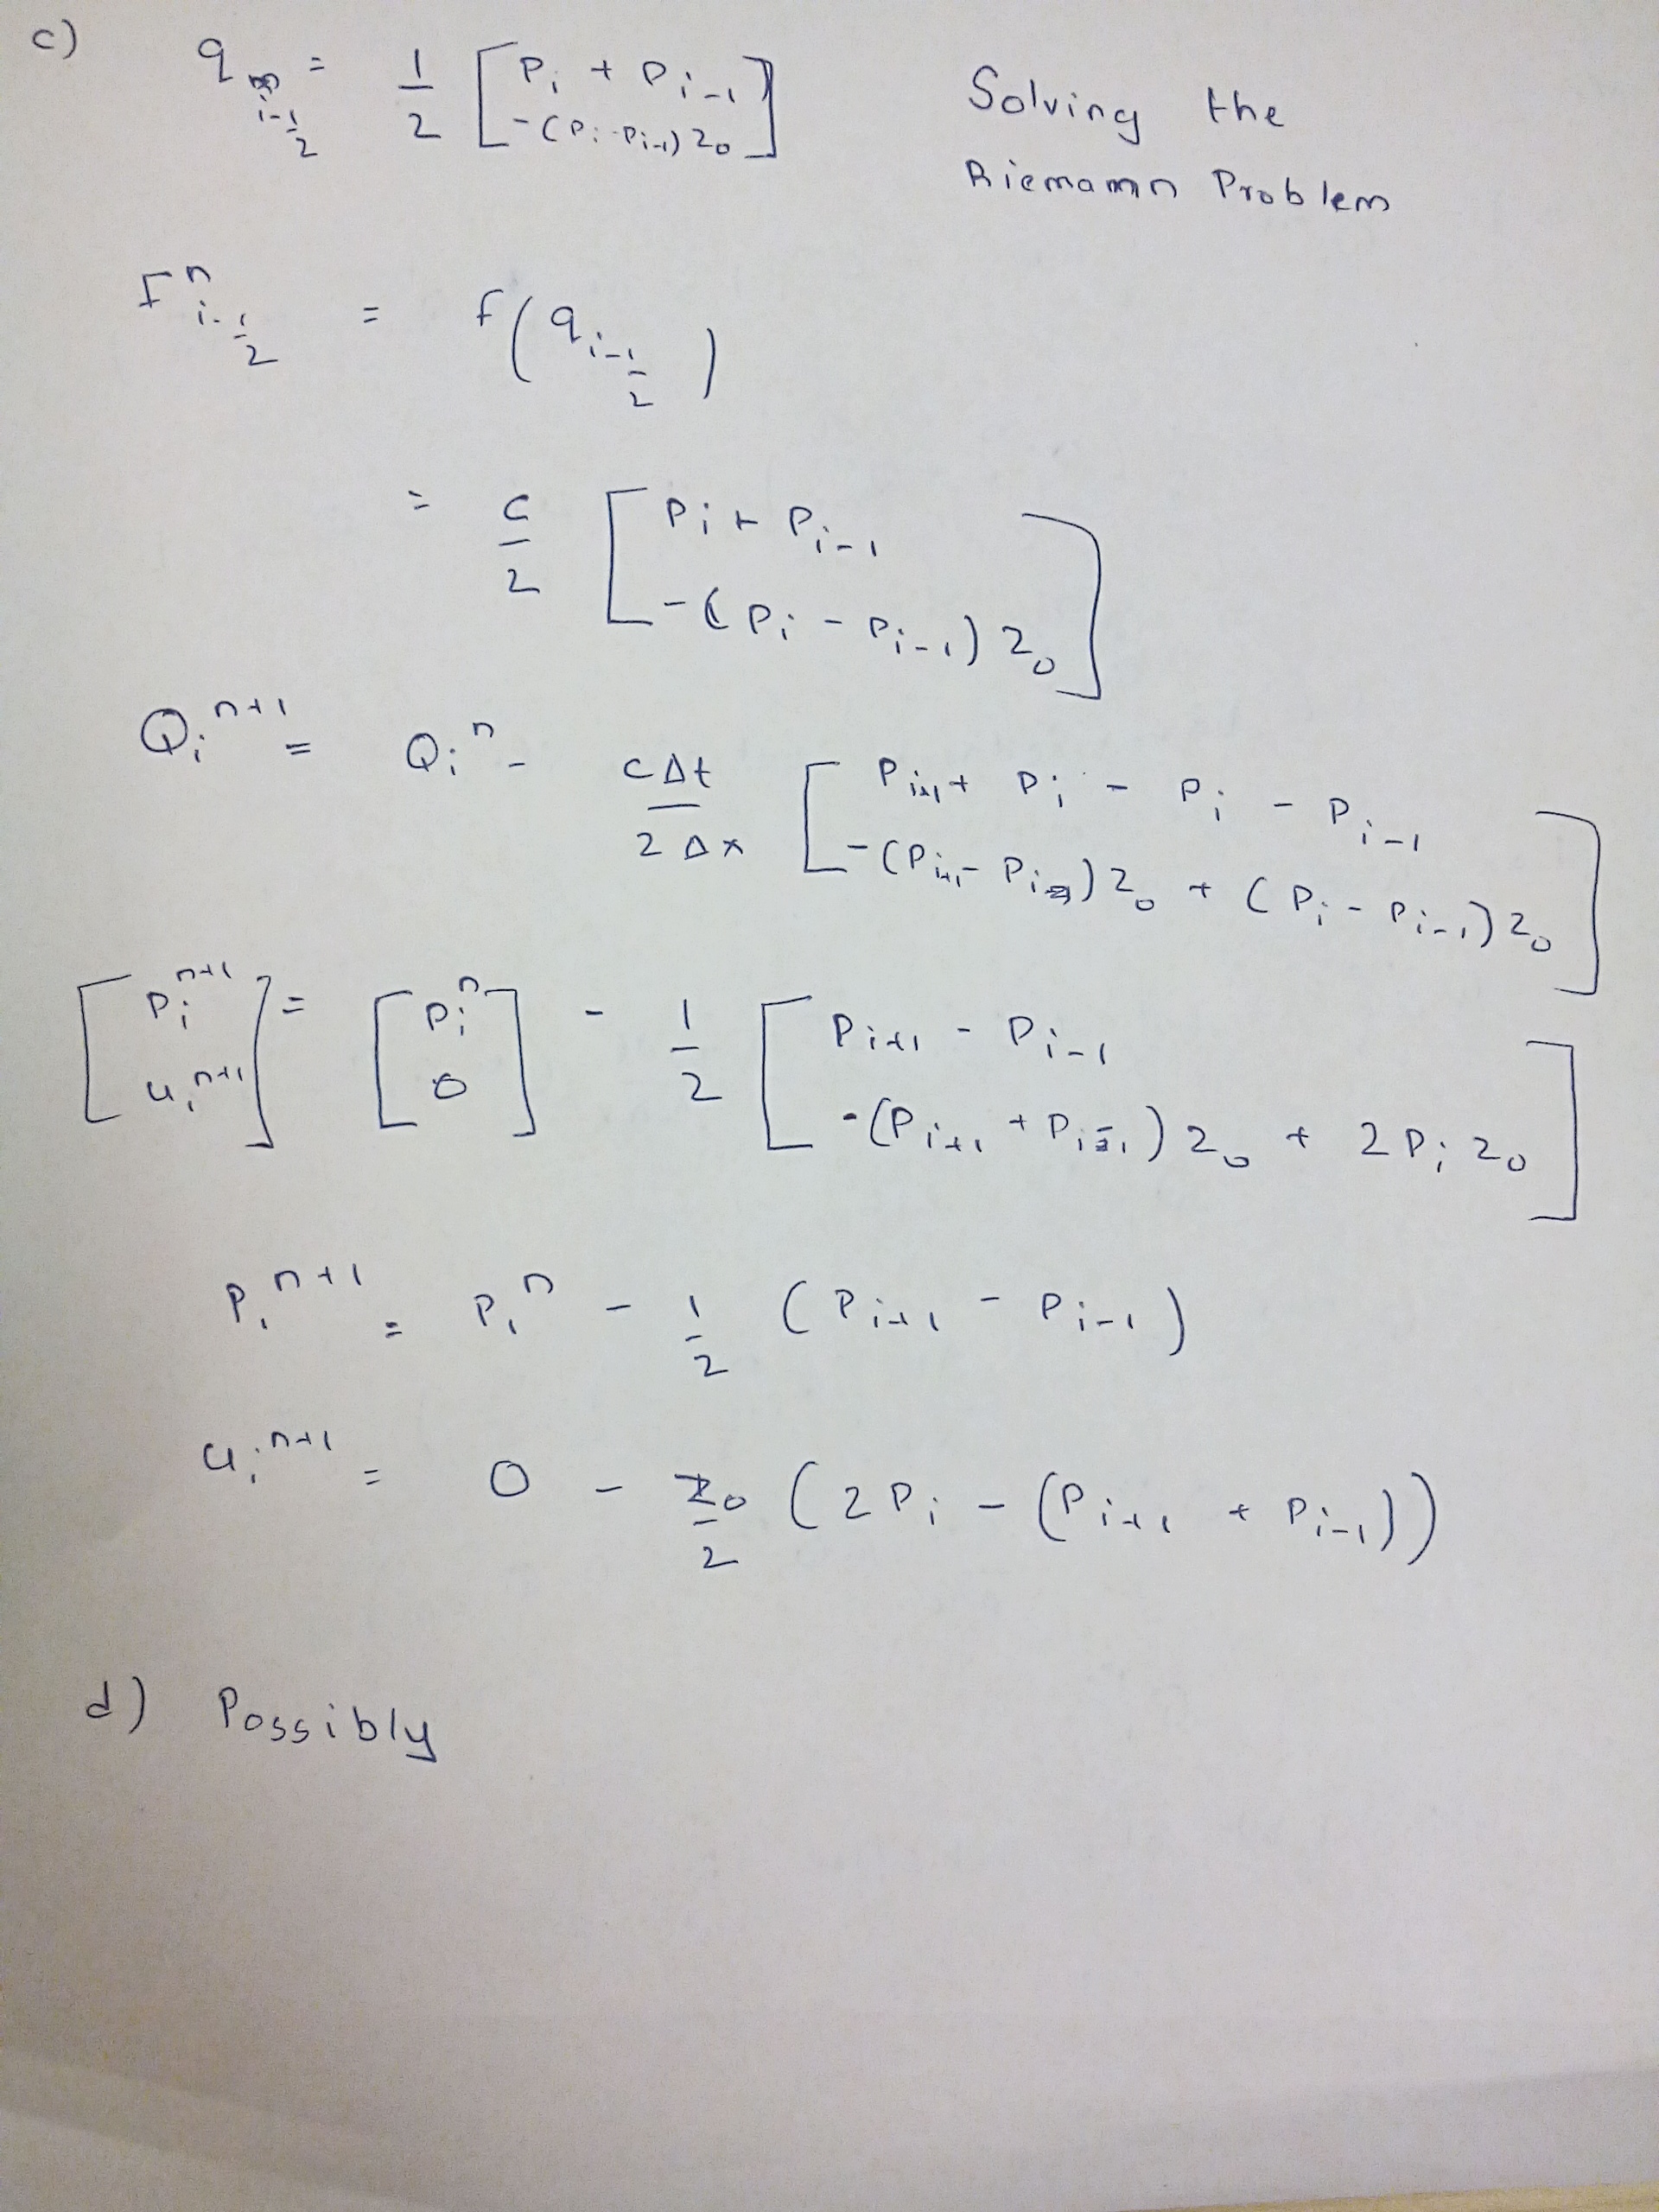 c) q_{i-1/2} = 1/2 [ P_i + P_{i-1} ; -(P_i - P_{i-1}) z_0 ]
Solving the
Riemamn Problem
F^n_{i-1/2} = f(q_{i-1/2})
= c/2 [ P_i + P_{i-1} ; -(P_i - P_{i-1}) z_0 ]
Q_i^{n+1} = Q_i^n - cΔt/2Δx [ P_{i+1} + P_i - P_i - P_{i-1} ; -(P_{i+1} - P_i) z_0 + (P_i - P_{i-1}) z_0 ]
[ P_i^{n+1} ; u_i^{n+1} ] = [ P_i^n ; 0 ] - 1/2 [ P_{i+1} - P_{i-1} ; -(P_{i+1} + P_{i-1}) z_0 + 2P_i z_0 ]
P_i^{n+1} = P_i^n - 1/2 (P_{i+1} - P_{i-1})
u_i^{n+1} = 0 - z_0/2 (2P_i - (P_{i+1} + P_{i-1}))
d) Possibly